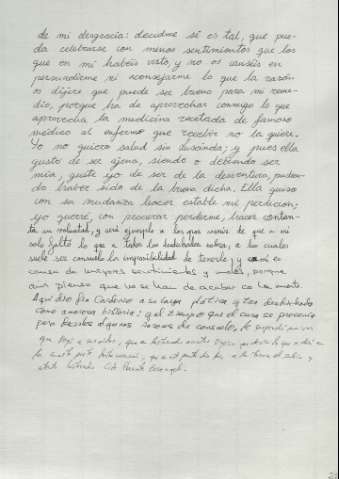 de mi desgracia: decidme si es tal, que pue-
da celebrarse con menos sentimientos que los
que en mí habéis visto, y no os canséis en
persuadirme ni aconsejarme lo que la razón
os dijere que puede ser bueno para mi reme-
dio, porque ha de aprovechar conmigo lo que
aprovecha la medicina recetada de famoso
médico al enfermo que recibir no la quiere.
Yo no quiero salud sin Luscinda; y pues ella
gusta de ser ajena, siendo o debiendo ser
mía, guste yo de ser de la desventura, pudien-
do haber sido de la buena dicha. Ella quiso
con su mudanza hacer estable mi perdición;
yo querré, con procurar perderme, hacer conten-
ta su voluntad, y será ejemplo a los por venir de que a mí
solo faltó lo que a todos los desdichados sobra, a los cuales
suele ser consuelo la imposibilidad de tenerle, y en mí es
causa de mayores sentimientos y males, porque
aun pienso que no se han de acabar con la muerte.
Aquí dio fin Cardenio a su larga plática y tan desdichada
como amorosa historia; y al tiempo que el cura se prevenía
para decirle algunas razones de consuelo, le suspendió una voz
que llegó a sus oídos, que en lastimados acentos oyeron que decía lo que se dirá en
la cuarta parte desta narración, que en este punto dio fin a la tercera el sabio y
atentado historiador Cide Hamete Benengeli.